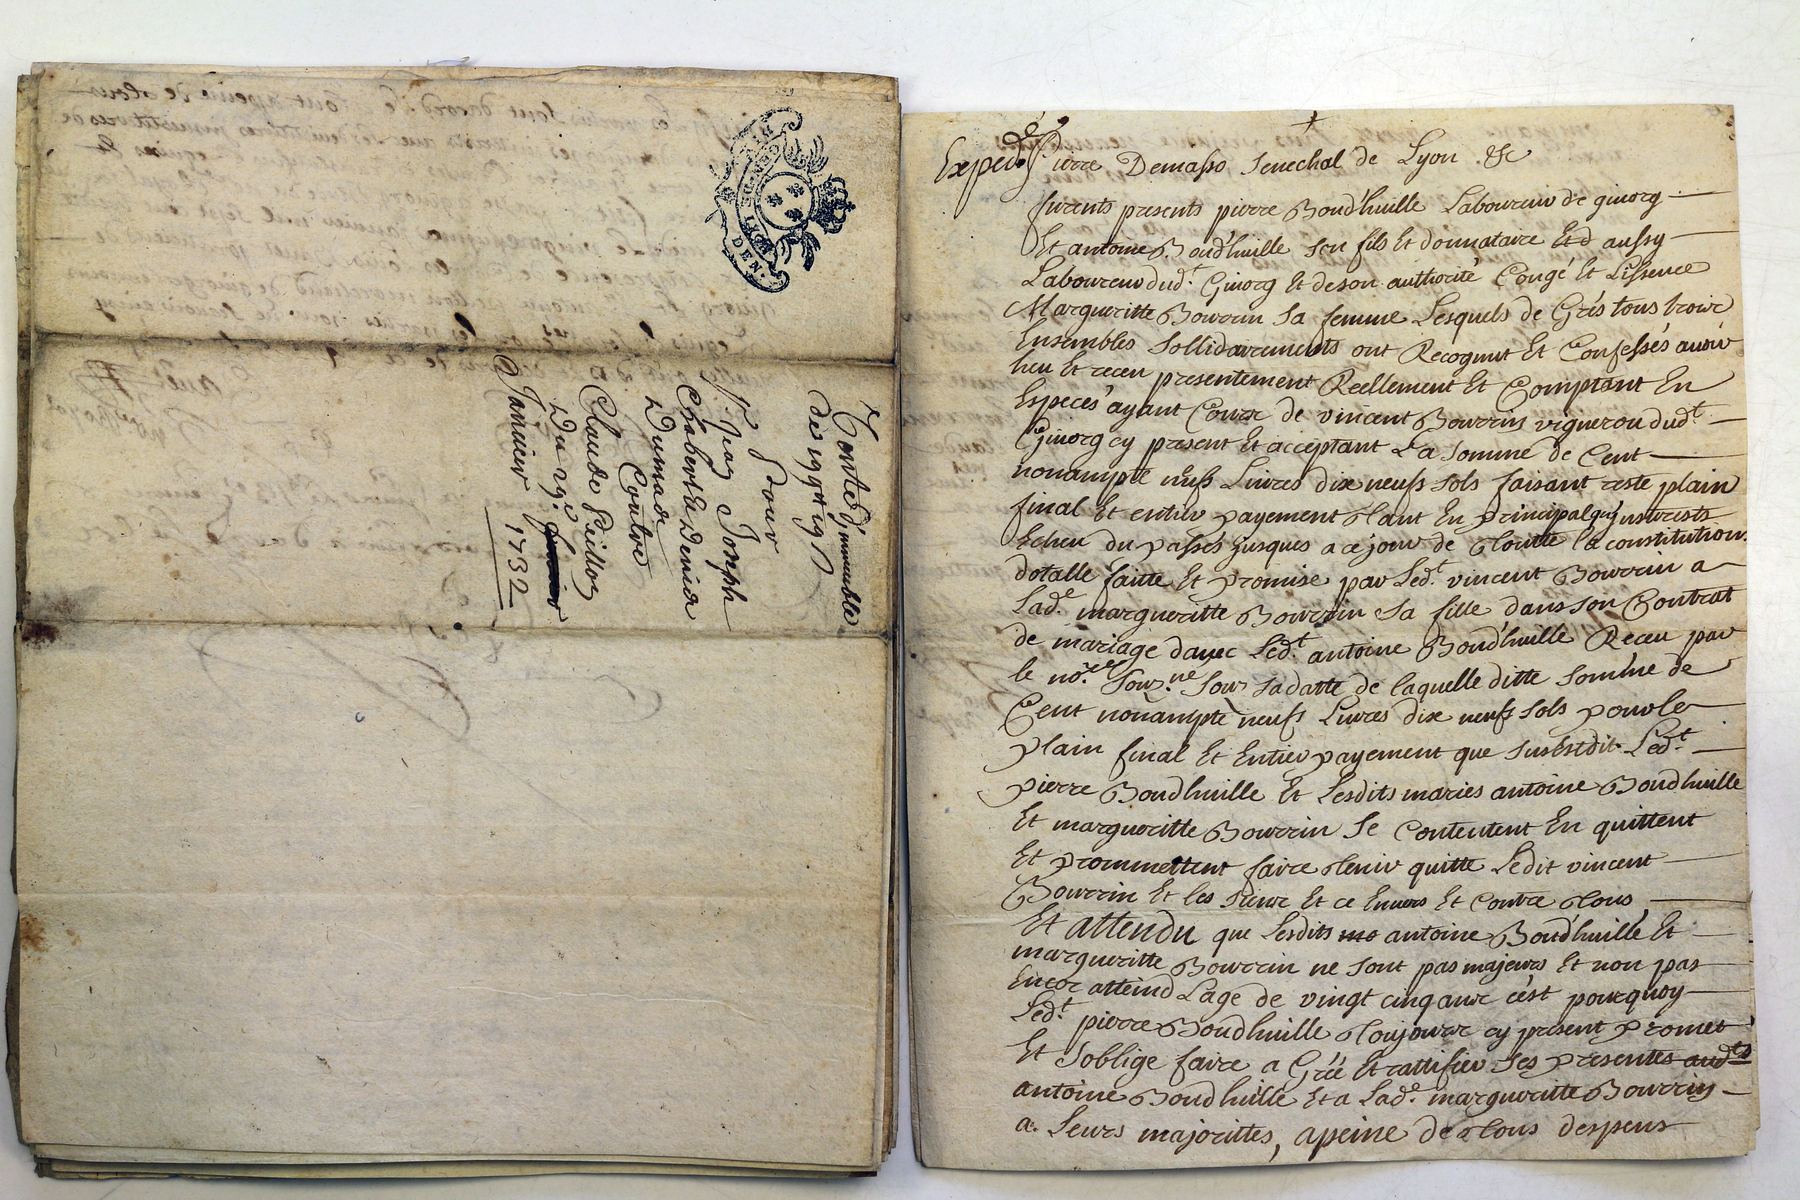 GENER. LYON
DEN.
Vente d'immeuble
de 199# 19s
pour
Sr. Jean Joseph
Chabert de Devia
Dumad
Contre
Claude Peillon
Du 29e
Janvier 1732
Exped.
Pierre Demasso Senechal de Lyon &c
furents presents pierre Boud'huille Laboureur de givorg
Et antoine Boud'huille son fils Et donnataire Et d aussy
Laboureur dud.t Givorg Et deson authorité Congé Et Lissence
Margueritte Bourrin sa femme Lesquels de Grés tous trois
Ensembles sollidairements ont Recognut Et Confessés avoir
heu Et receu presentement Reellement Et Comptant En
Especes ayant Cours de vincent Bourrin vigneron dud.t
Givorg cy present Et acceptant La somme de Cent
nonampte neufs Livres dix neufs sols faisant reste plain
final Et entier payement tant En principal qu'jnterests
Echeu du passés jusques a ce jour de toutte la constitution
dotalle faitte Et promise par Led.t vincent Bourrin a
Lad.e margueritte Bourrin sa fille dans son Contrat
de mariage davec Led.t antoine Boud'huille Receu par
le no.re sous.ne sous sadatte de laquelle ditte somme de
Cent nonampte neufs Livres dix neufs sols pour le
plain final Et Entier payement que susEstdit Led.t
pierre Boudhuille Et Lesdits maries antoine Boudhuille
Et margueritte Bourrin Se Contentent En quittent
Et prommettent faire tenir quitte Ledit vincent
Bourrin Et les siens Et ce Envers Et Contre tous
Et attendu que Lesdits ma antoine Boud'huille Et
margueritte Bourrin ne sont pas majeurs Et non pas
Encor atteind Lage de vingt cinq ans c'est pourquoy
Led.t pierre Boudhuille toujours cy present promet
Et s'oblige faire a Gréé Et rattifier ses presentes aud.ts
antoine Boudhuille Et a Lad.e margueritte Bourrin
a Leurs majorittes, apeine de tous despens